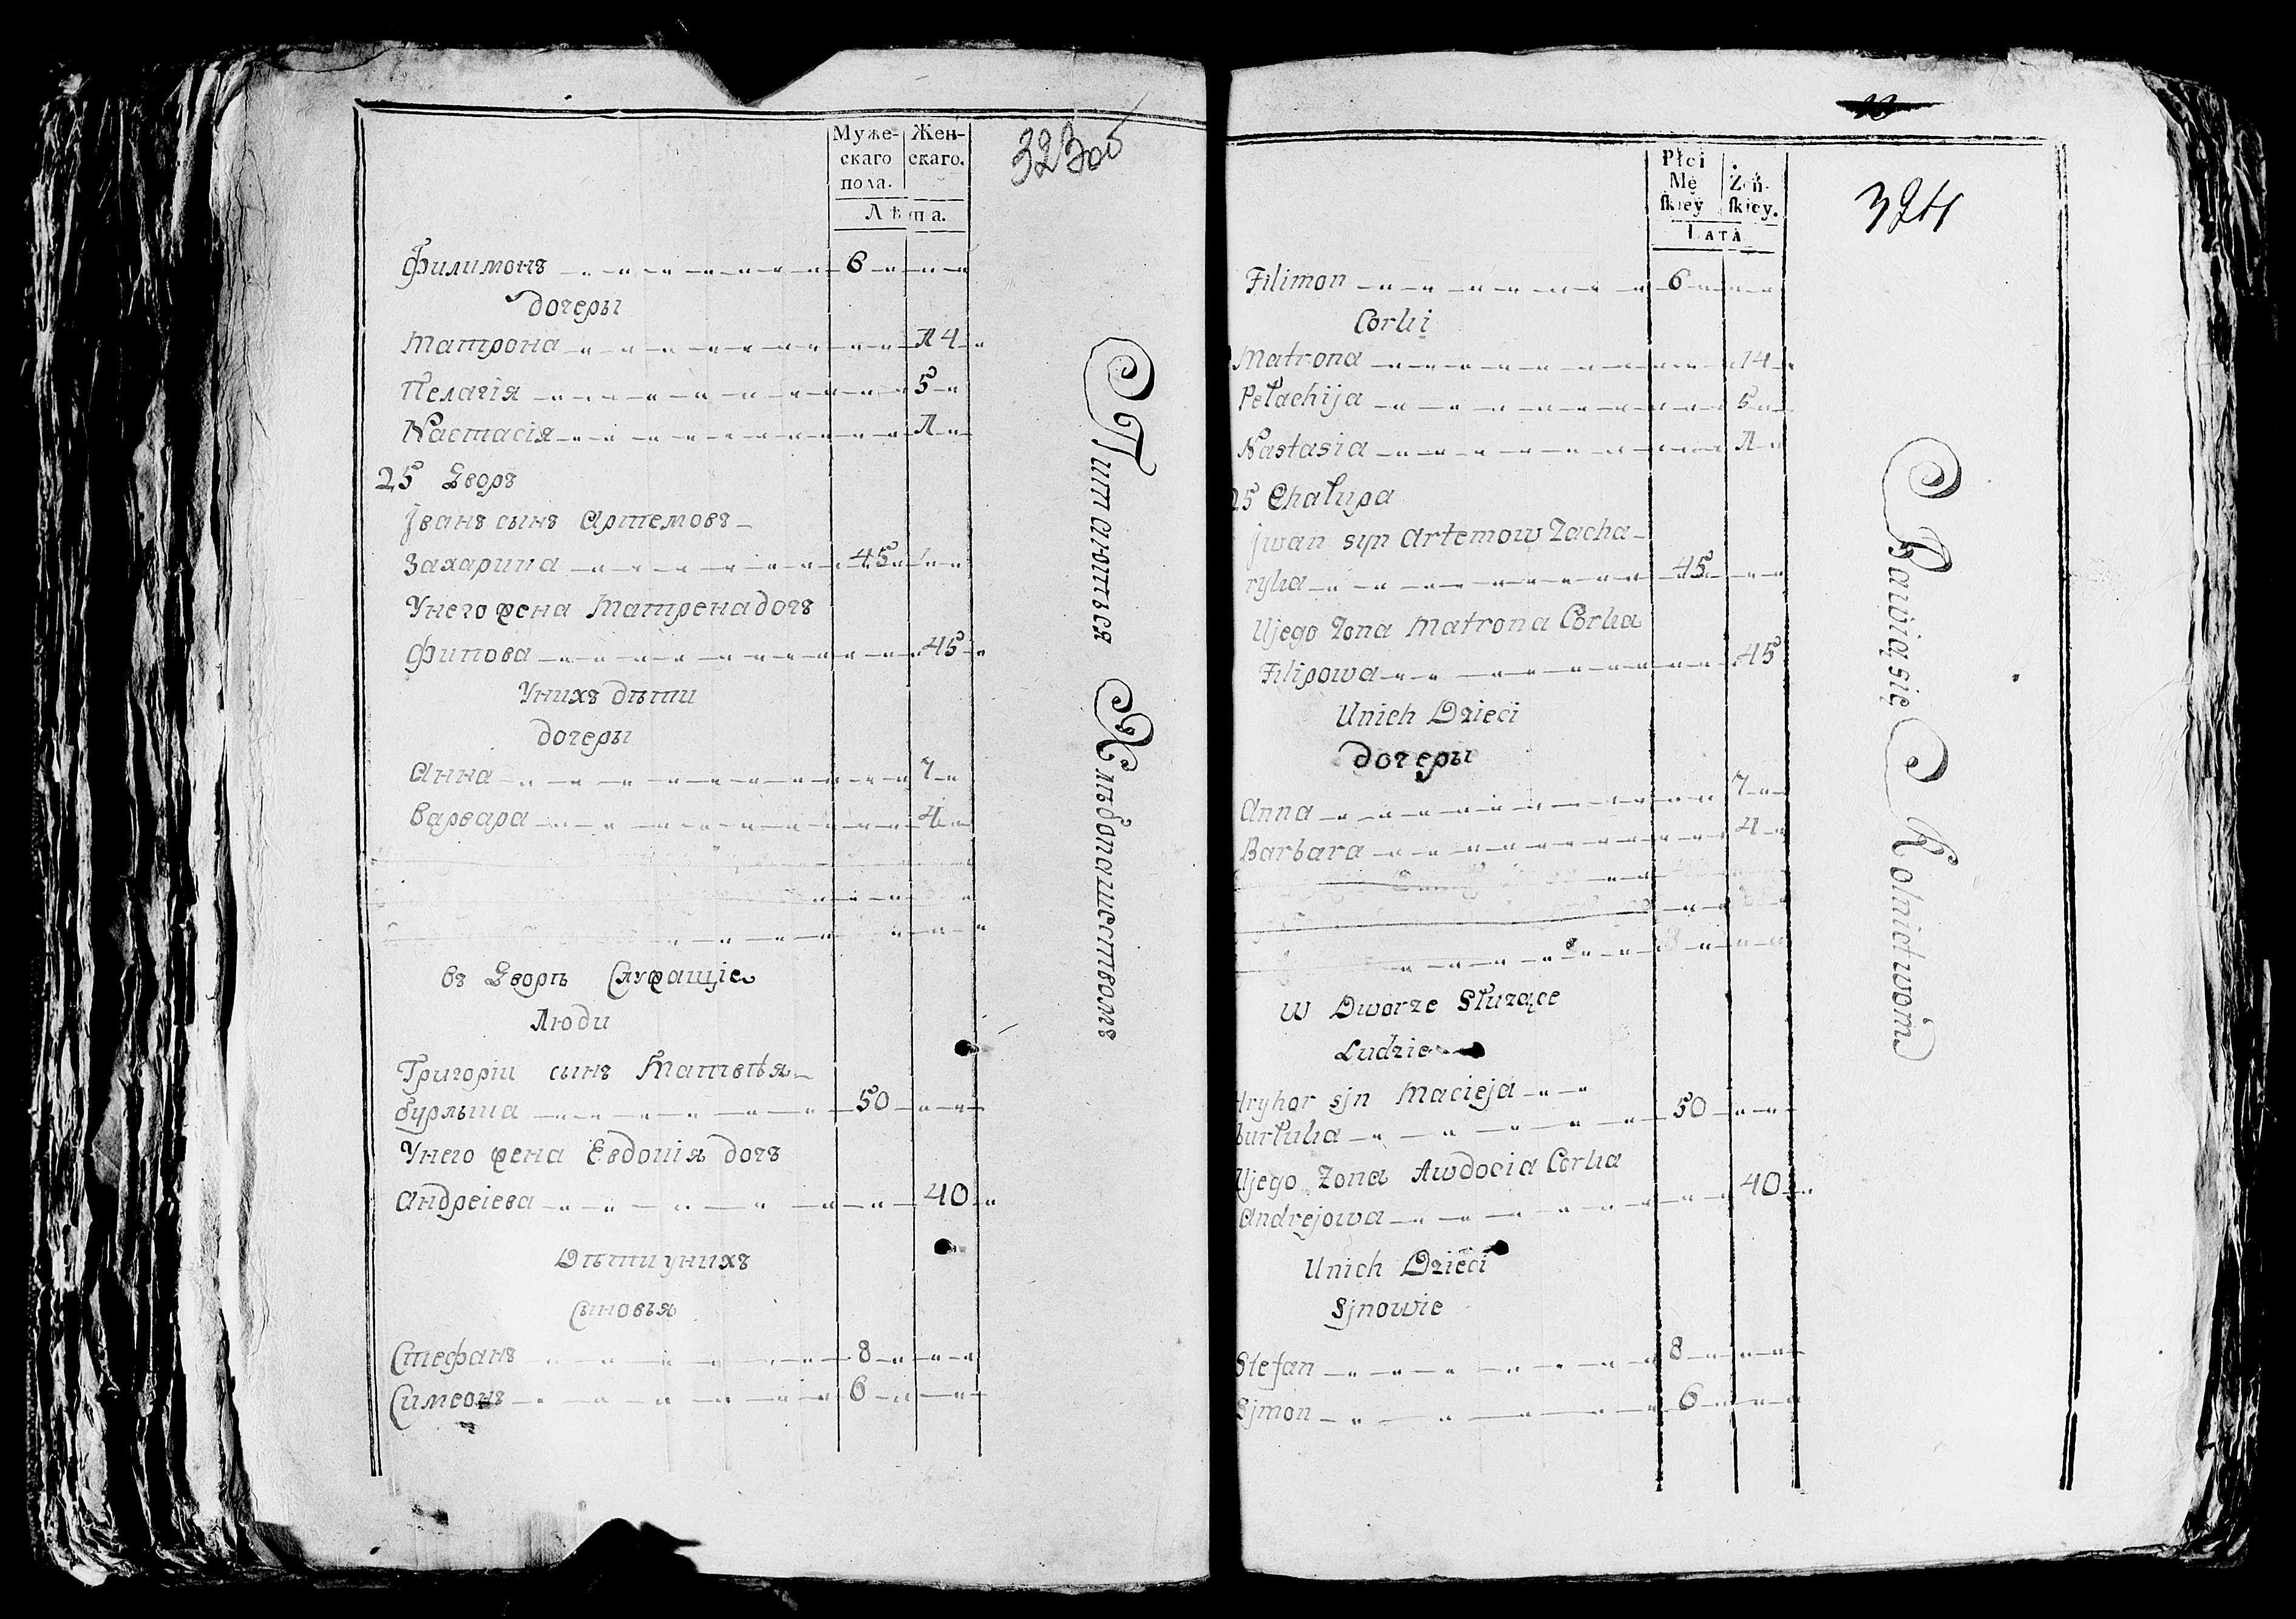 Муже-
скаго
пола.
Жен-
скаго.
Лѣта.
323об
Филимонъ 6
дочеры
Матрона 14
Пелагія 5
Настасія 1
25 Дворъ
Іванъ сынъ Артемовъ
Захарина 45
Унего жена Матрена дочъ
Фипова 45
Унихъ дѣти
дочеры
Анна 7
Варвара 4
въ Дворѣ Служащіе
Люди
Григоріи сынъ Матвѣя
бурлыка 50
Унего жена Евдокія дочъ
Андреіева 40
Дѣти унихъ
Сыновья
Стефанъ 8
Симеонъ 6
Питаються Хлѣбопашиствомъ
Płci
Mę
skiey
Żeń-
skiey.
Lata
324
Filimon 6
Corki
Matrona 14
Pełachija 5
Nastasia 1
25 Chałupa
Jwan syn Artemow Zacha-
ryka 45
Ujego Zona Matrona Corka
Filipowa 45
Unich Dzieci
дочеры
Anna 7
Barbara 4
W Dworze Służące
Ludzie
Hryhor sjn Macieja
burłuka 50
Ujego Zona Awdocia Corka
Andrejowa 40
Unich Dzieci
Sjnowie
Stefan 8
Sjmon 6
Bawią się Rolnictwom